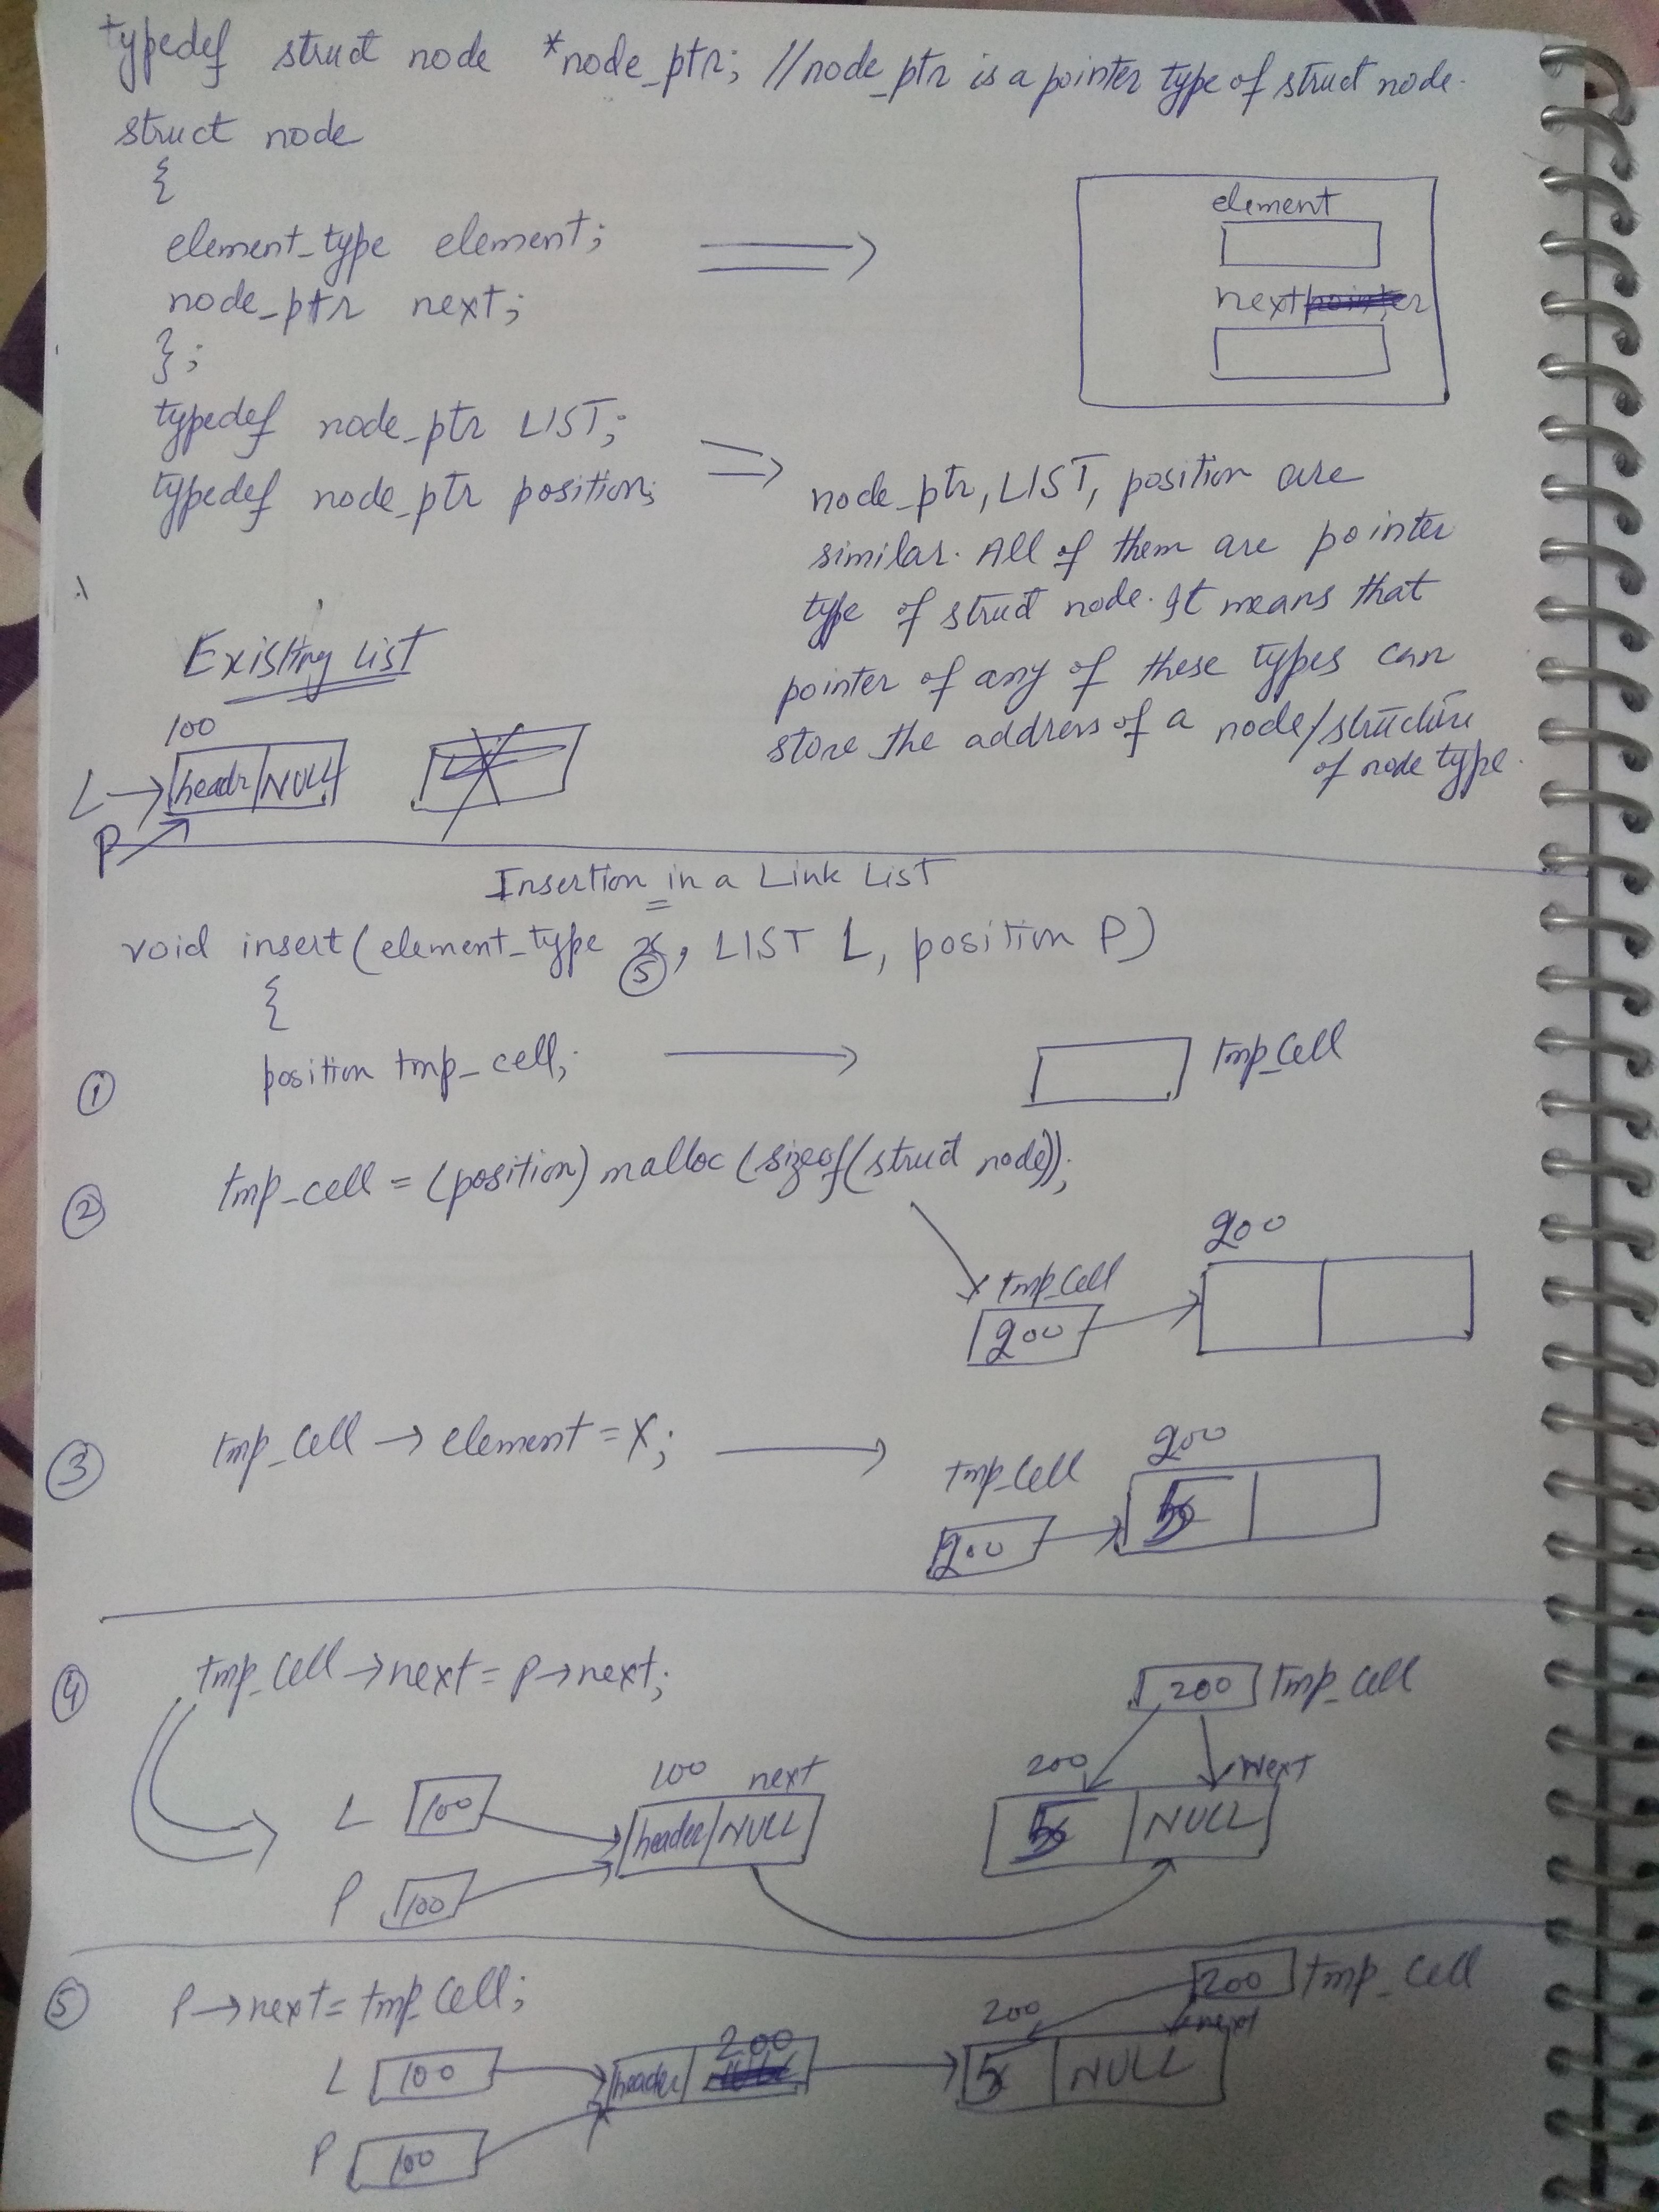 typedef struct node *node_ptr; //node_ptr is a pointer type of struct node.
struct node
{
element_type element;
node_ptr next;
};
element
next
typedef node_ptr LIST;
typedef node_ptr position;
node_ptr, LIST, position are
similar. All of them are pointer
type of struct node. It means that
pointer of any of these types can
store the address of a node/structure
of node type.
Existing List
100
L
headr NULL
P
Insertion in a Link List
void insert(element_type x, LIST L, position P)
5
{
1 position tmp_cell; tmp_cell
2 tmp_cell = (position) malloc (sizeof(struct node));
200
tmp_cell
200
3 tmp_cell → element = X;
200
tmp_cell
5
200
4 tmp_cell → next = P → next;
200 tmp_cell
100 next
200 Next
L 100
header NULL
5 NULL
P 100
5 P → next = tmp_cell;
200 tmp_cell
200 next
L 100
header 200
5 NULL
P 100